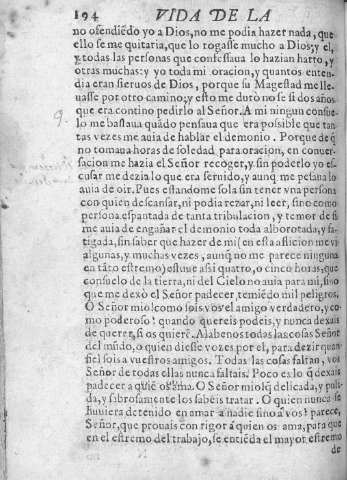 194 VIDA DE LA
no ofendiēdo yo a Dios, no me podia hazer nada, que
ello se me quitaria, que lo rogasse mucho a Dios; y el,
y todas las personas que confessaua lo hazian harto, y
otras muchas: y yo toda mi oracion, y quantos enten-
dia eran sieruos de Dios, porque su Magestad me lle-
uasse por otro camino; y esto me durò no se si dos años
que era contino pedirlo al Señor. A mi ningun consue-
lo me bastaua quãdo pensaua que era possible que tan-
tas vezes me auia de hablar el demonio. Porque de q̃
no tomaua horas de soledad para oracion, en conuer-
sacion me hazia el Señor recoger, y sin poderlo yo es-
cusar me dezia lo que era seruido, y aunq̃ me pesaua lo
auia de oir. Pues estandome sola sin tener vna persona
con quien descansar, ni podia rezar, ni leer, sino como
persona espantada de tanta tribulacion, y temor de si
me auia de engañar el demonio toda alborotada, y fa-
tigada, sin saber que hazer de mi (en esta aflicion me vi
algunas, y muchas vezes, aunq̃ no me parece ninguna
en tãto estremo) estuue assi quatro, o cinco horas, que
consuelo de la tierra, ni del Cielo no auia para mi, sino
que me dexò el Señor padecer, temiẽdo mil peligros.
O Señor mio! como sois vos el amigo verdadero, y co-
mo poderoso! quando quereis podeis, y nunca dexais
de querer, si os quierẽ. Alabenos todas las cosas Señor
del mũdo, o quien diesse vozes por el, para dezir quan
fiel sois a vuestros amigos. Todas las cosas faltan, vos
Señor de todas ellas nunca faltais. Poco es lo q̃ dexais
padecer a quiẽ os ama. O Señor mio! q̃ delicada, y puli-
da, y sabrosamente los sabeis tratar. O quien nunca se
huuiera detenido en amar a nadie sino a vos! parece,
Señor, que prouais con rigor à quien os ama, para que
en el estremo del trabajo, se entiẽda el mayor estremo
de